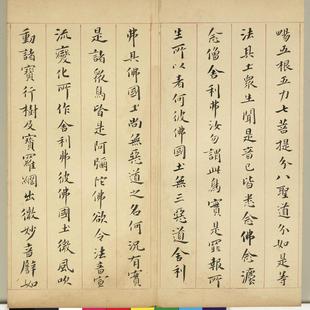 暢五根五力七菩提分八聖道分如是等
法其土衆生聞是音已皆悉念佛念法
念僧舍利弗汝勿謂此鳥實是罪報所
生所以者何彼佛國土無三惡道舍利
弗其佛國土尚無惡道之名何況有實
是諸衆鳥皆是阿彌陀佛欲令法音宣
流變化所作舍利弗彼佛國土微風吹
動諸寶行樹及寶羅網出微妙音辟如